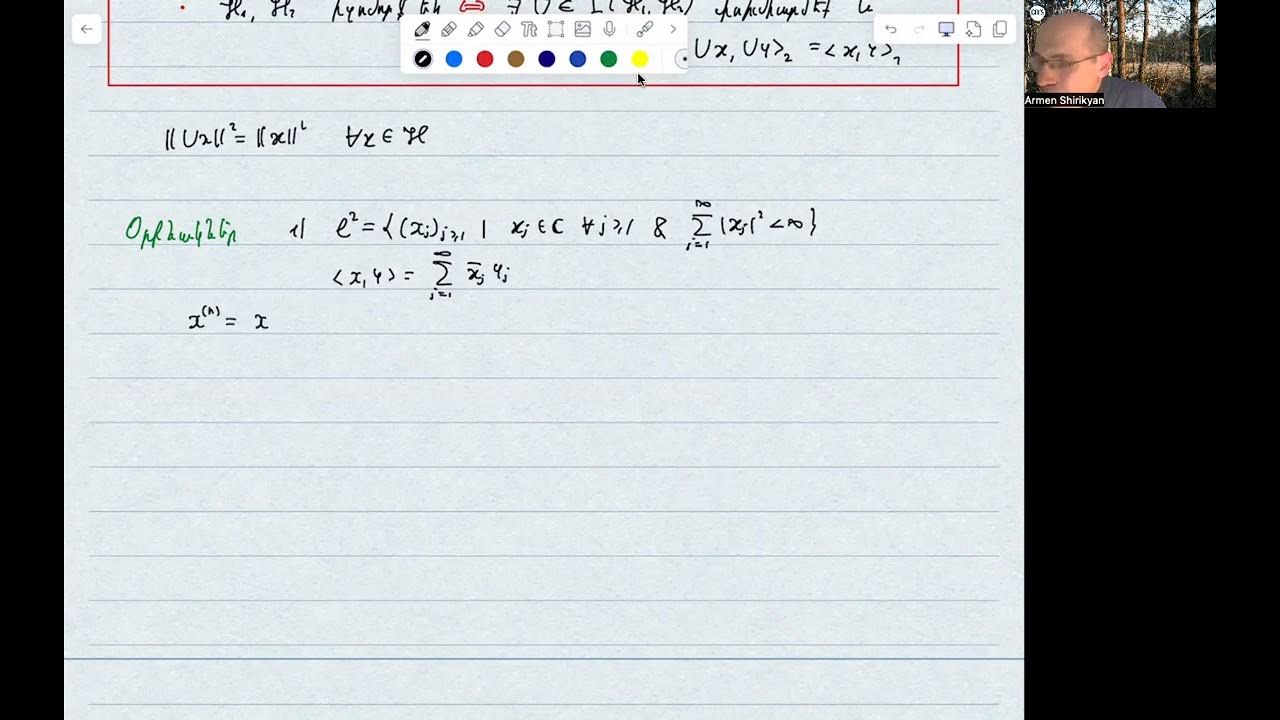 ℋ₁, ℋ₂ ⇔ ∃ U ∈ L(ℋ₁, ℋ₂)
Ux, Uy⟩₂ = ⟨x, y⟩₁
Armen Shirikyan
‖Ux‖² = ‖x‖² ∀x ∈ ℋ
Օրինակներ 1) ℓ² = {(xⱼ)ⱼ≥₁ | xⱼ ∈ ℂ ∀j≥1 & ∑_{j=1}^{∞} |xⱼ|² < ∞}
⟨x, y⟩ = ∑_{j=1}^{∞} x̄ⱼ yⱼ
x⁽ⁿ⁾ = x